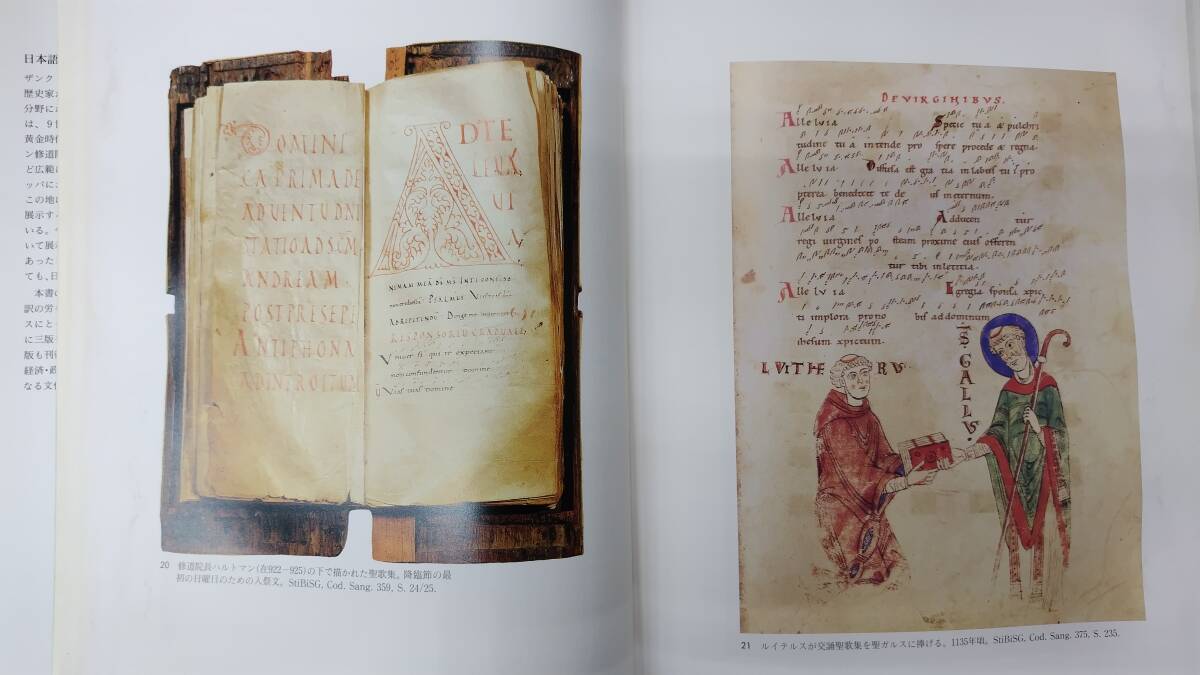 日本語
ザンク
歴史家
分野に
は、9世
黄金時代
ン修道院
ど広範
ッパに
この地
展示す
いる。
いて展
あった
ても、日
本書の
訳の労
スにと
に三版
版も刊
経済・政
なる文
DOMINI
CA PRIMA DE
ADVENTU DNI
STATIO AD SCM
ANDREAM
POST PRESEPE
ANTIPHONA
AD INTROITUM
AD TE
LEVAVI
NIMAM MEAM DS MS IN TE CONFIDO
PSALMUS
RESPONSORIU GRADUALE
non confundentur domine
Vias tuas domine
20 修道院長ハルトマン(在922-925)の下で描かれた聖歌集。降臨節の最
初の日曜日のための入祭文。StiBiSG, Cod. Sang. 359, S. 24/25.
DE VIRGINIBUS.
Alleluia Specie tu a & pulchri
tudine tu a intende pro spere procede & regna.
Alleluia Diffusa est gra tia in labiis tu is pro
pterea benedixit te de us in eternum.
Alleluia Adducen tur
regi virgines po steam proxime eius offeren
tur tibi in letitia.
Alleluia Egregia sponsa xpic
ti implora pro no bis ad dominum
ihesum xpictum.
LUITHE RUS
S GALLUS
21 ルイテルスが交誦聖歌集を聖ガルスに捧げる。1135年頃。StiBiSG, Cod. Sang. 375, S. 235.